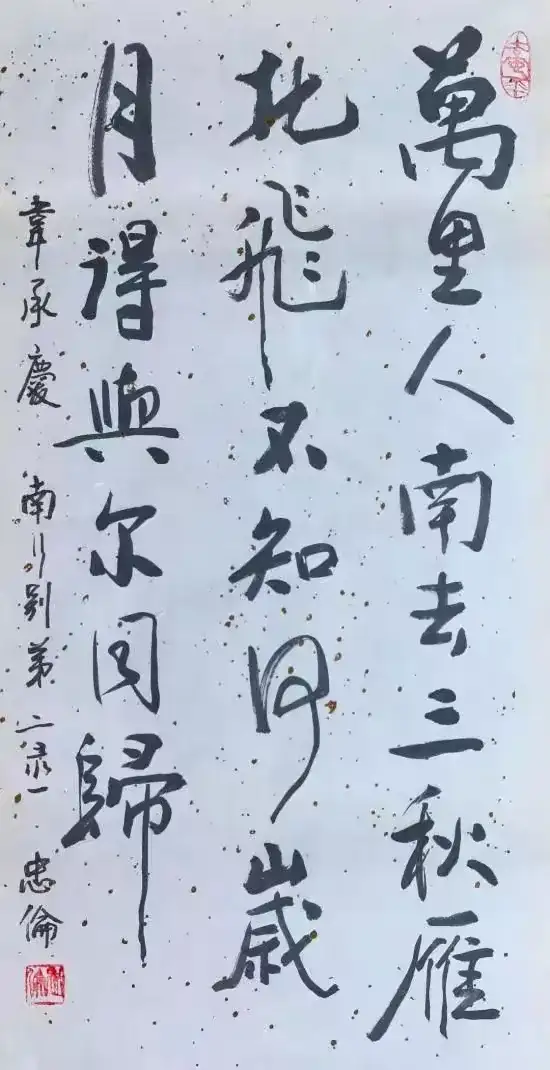 萬里人南去三秋雁
北飛不知何歲
月得與尔同歸
韋承慶 南行别弟 忠倫